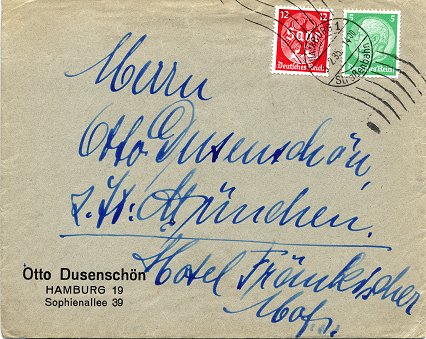 12 12
Saar
Deutsches Reich
5 5
Herrn
Otto Dusenschön,
z. Zt. München.
Hotel Fränkischer
Hof.
Otto Dusenschön
HAMBURG 19
Sophienallee 39